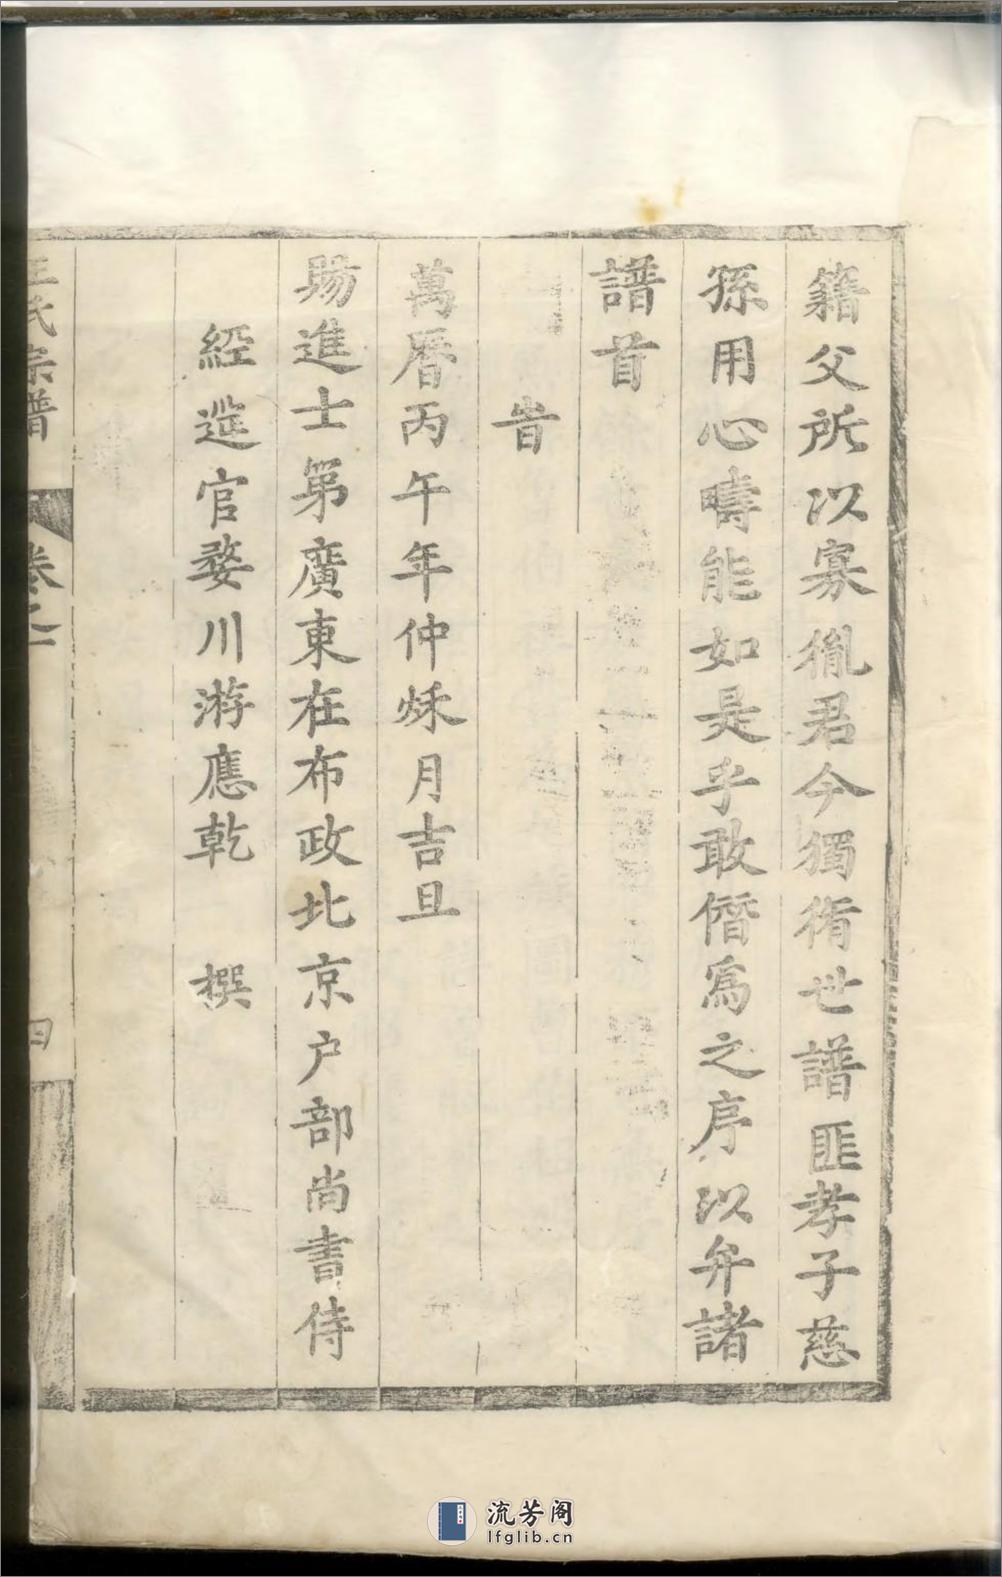 籍父所以寡胤君今獨脩世譜匪孝子慈
孫用心疇能如是乎敢僭爲之序以弁諸
譜首
旹
萬曆丙午年仲秌月吉旦
賜進士第廣東在布政北京户部尚書侍
經筵官婺川游應乾 撰
王氏宗譜 卷之一 四
流芳阁
lfglib.cn